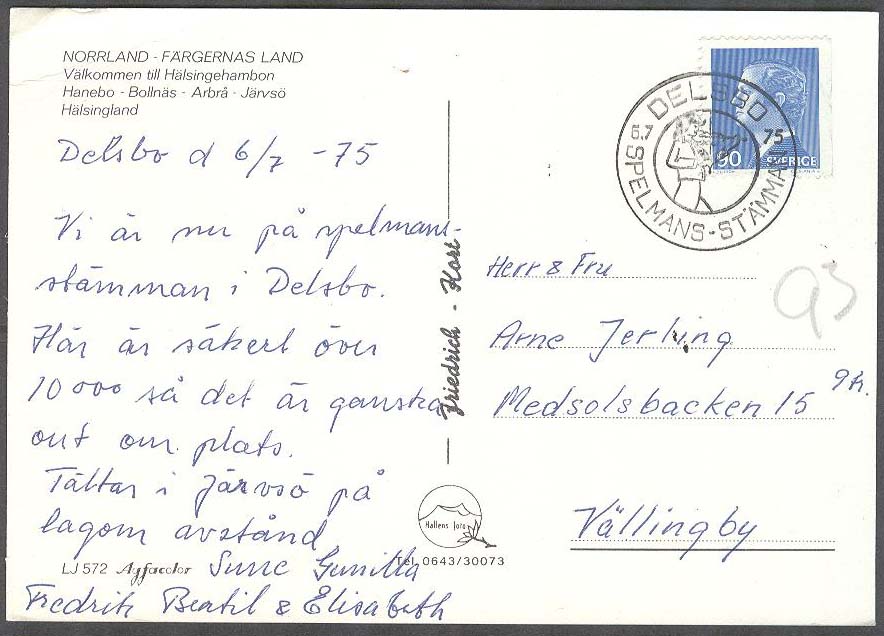 NORRLAND - FÄRGERNAS LAND
Välkommen till Hälsingehambon
Hanebo - Bollnäs - Arbrå - Järvsö
Hälsingland
Delsbo d 6/7 -75
Vi är nu på spelmans-
stämman i Delsbo.
Här är säkert över
10 000 så det är ganska
ont om plats.
Tältar i Järvsö på
lagom avstånd
Sune Gunilla
Fredrik Bertil & Elisabeth
LJ 572 Agfacolor
Friedrich - Kort
Hallens foto
Tel. 0643/30073
DELSBO
6.7 75
SPELMANS-STÄMMAN
90 SVERIGE
Herr & Fru
Arne Jerling
Medsolsbacken 15 9tr.
Vällingby
93